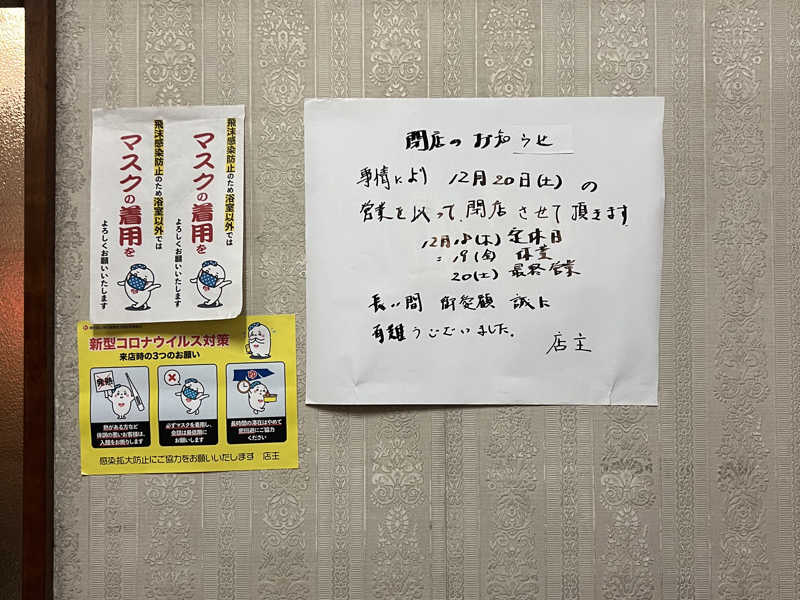 飛沫感染防止のため浴室以外では
マスクの着用を
よろしくお願いいたします
飛沫感染防止のため浴室以外では
マスクの着用を
よろしくお願いいたします
新型コロナウイルス対策
来店時の3つのお願い
発熱
熱がある方など
体調の悪いお客様は、
入館をお断りします
必ずマスクを着用し、
会話は最低限に
お願いします
長時間の滞在はやめて
密回避にご協力
ください
感染拡大防止にご協力をお願いいたします 店主
閉店のお知らせ
事情により 12月20日(土)の
営業を以って、閉店させて頂きます
12月18(木) 定休日
〃 19(金) 休業
20(土) 最終営業
長い間 御愛顧 誠に
有難うございました。
店主